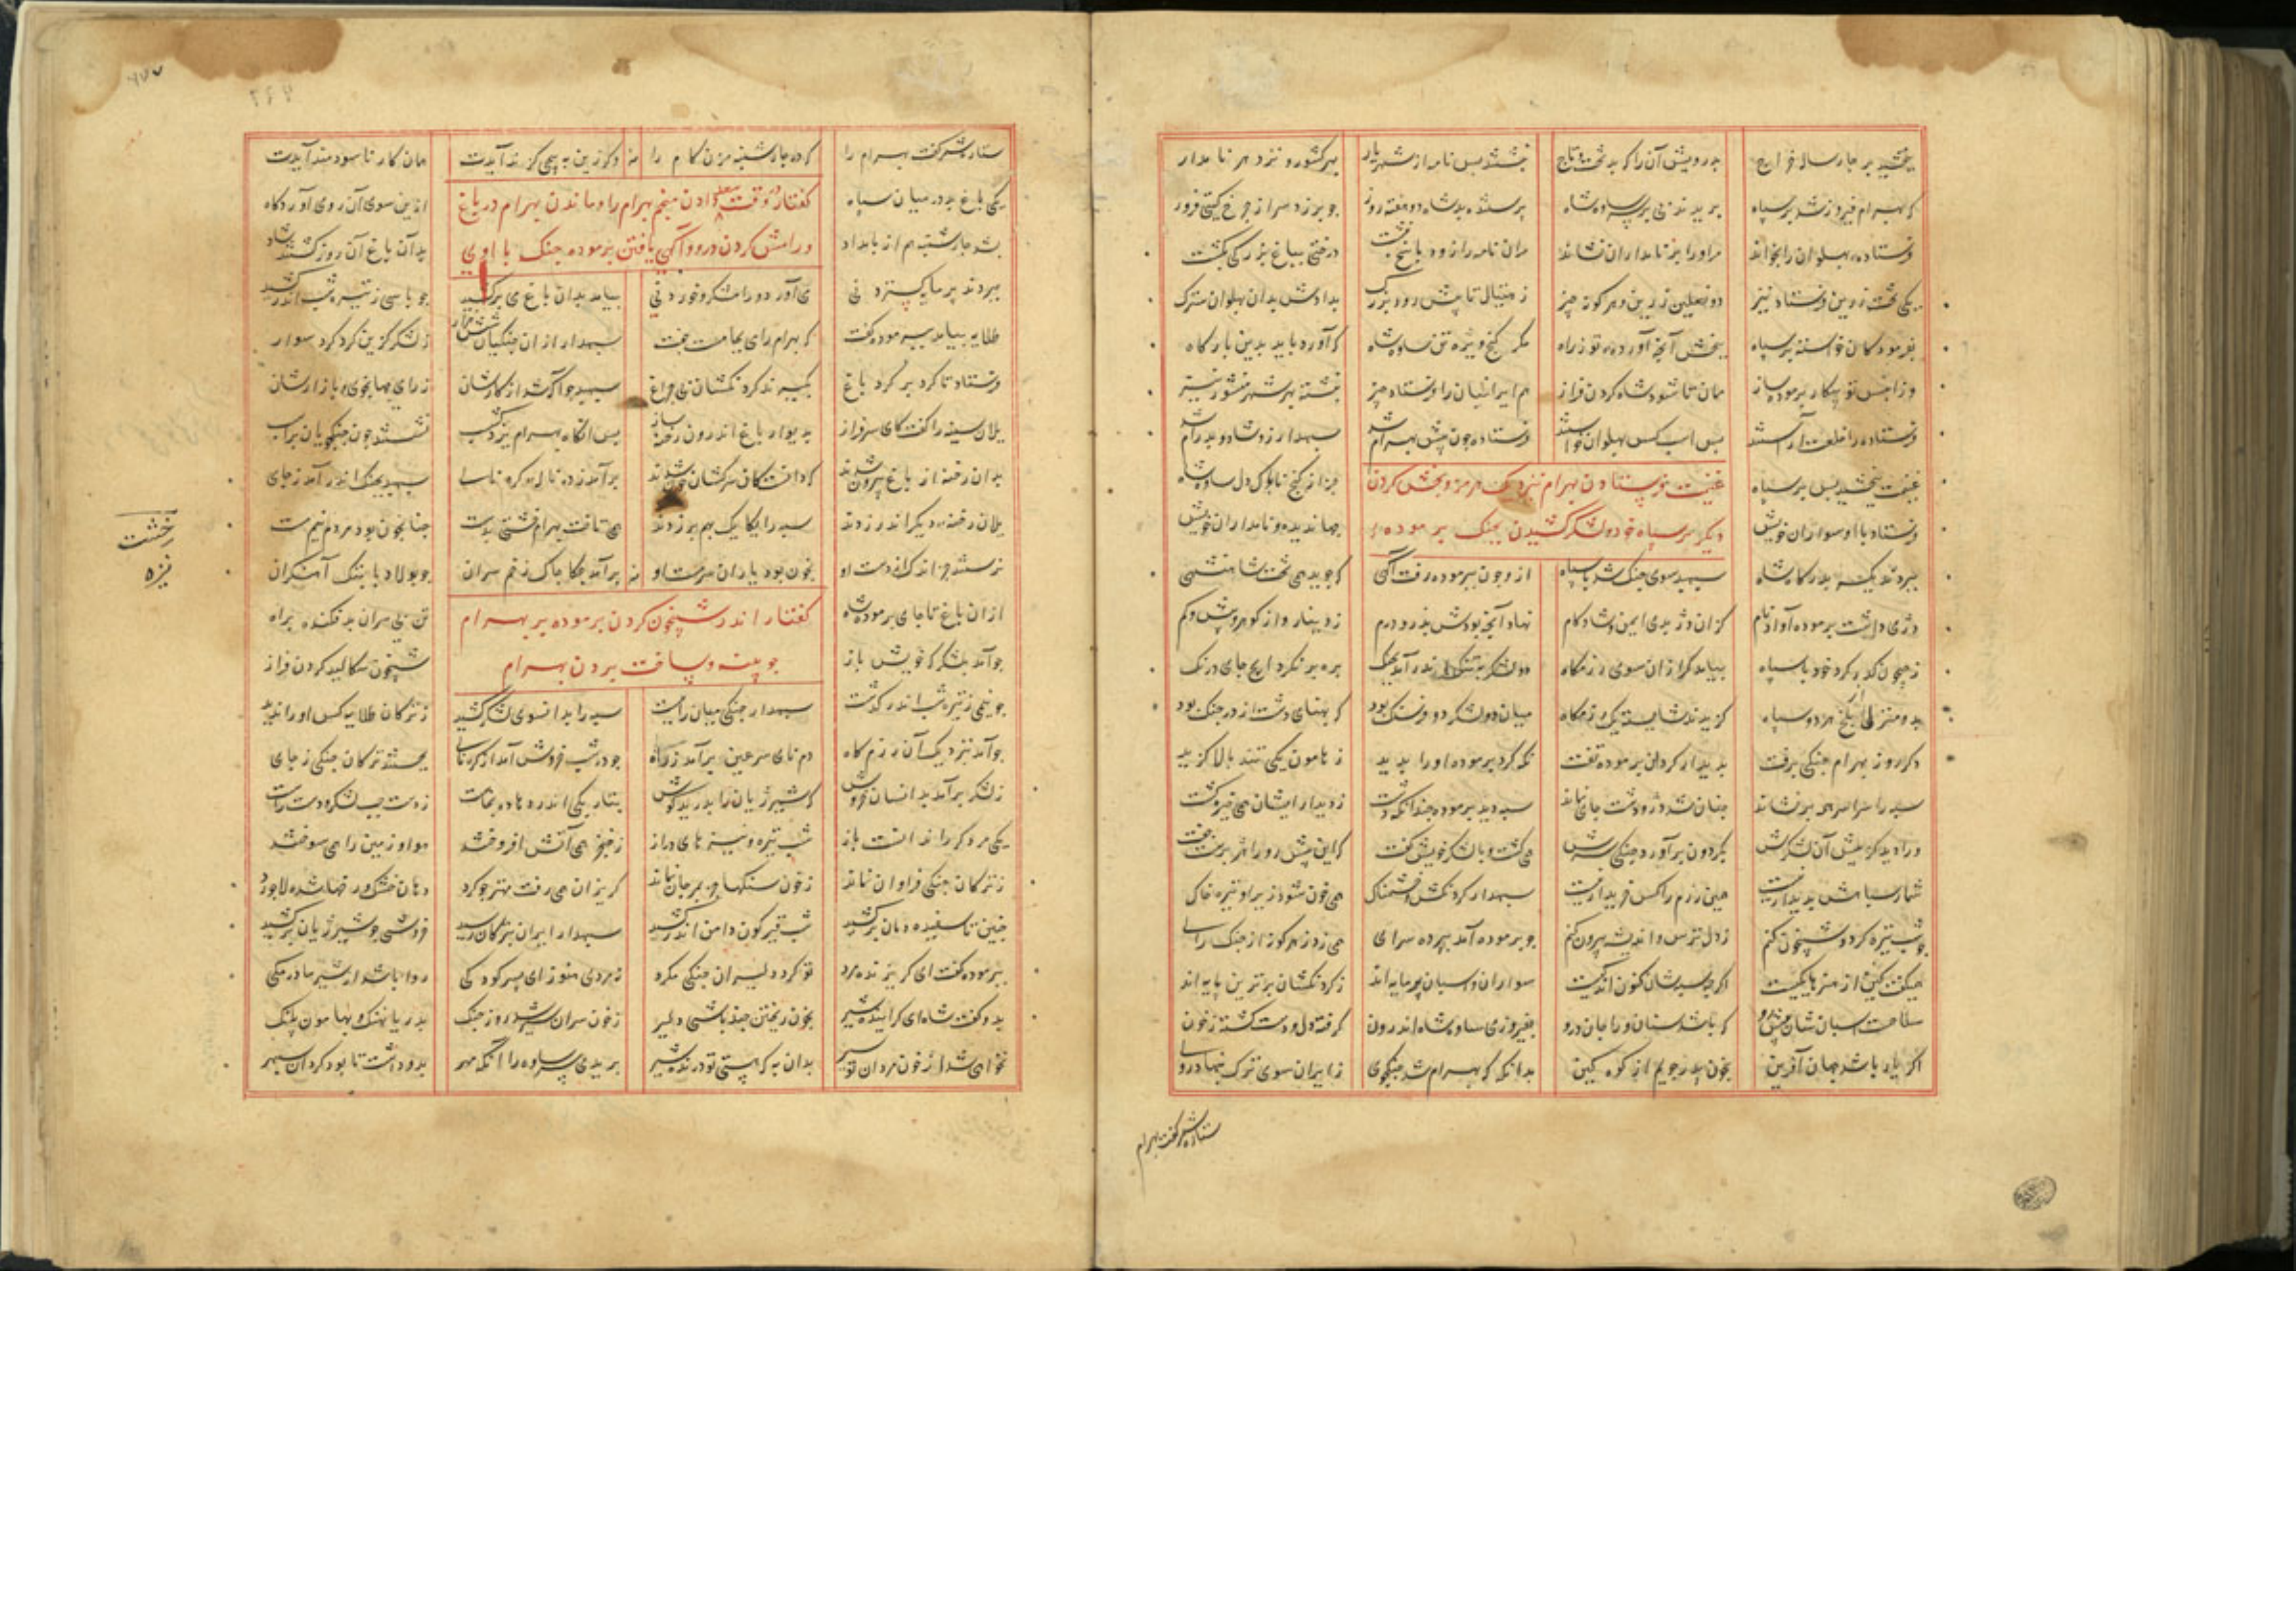 ببخشید بر چار ساله خراج بدرویش آن را که بد تخت و تاج نبشتند پس نامه از شهریار بهر کشور و نزد هر نامدار
که بهرام فیروز شد بر سپاه بریدند بی بر سر ساوه شاه پرستنده بد شاه دو هفته روز چو برزد سر از چرخ گیتی فروز
فرستاده پهلوان را بخواند مراورا بر نامداران نشاند مران نامه را زود پاسخ نبشت درختی بباغ بزرگی بکشت
یکی تخت زرین فرستاد نیز دو نعلین زرین و هر گونه چیز ز هیتال تا پیش رود بزرگ بدادش بدان پهلوان سترک
بفرمود کان خواسته بر سپاه ببخش آنچه آورده تو ز راه مگر گنج ویژه تن ساوه شاه که آورد باید بدین بارگاه
وزان پس تو پیکار پرموده ساز ممان تا شود شاه گردن فراز هم ایرانیان را فرستاد چیز نبشته بهر شهر منشور نیز
فرستاده را خلعت آراستند پس اسب کس پهلوان خواستند فرستاده چون پیش بهرام شد سپهدار زو شاد و پدرام شد
غنیمت ببخشید پس بر سپاه جز از گنج ناپاک دل ساوه شاه
غنیمت فرستادن بهرام نزدیک هرمز و بخش کردن
فرستاد با او سواران خویش جهاندیده و نامداران خویش
دیگر بر سپاه خود و لشکر کشیدن بجنگ پرموده
ببردند یکسر بدرگاه شاه سپهبد سوی جنگ شد با سپاه ازو چون بپرموده رفت آگهی که جوید همی تخت شاهنشهی
دژی داشت پرموده آواز نام کزان دژ بدی ایمن و شادکام نهاد آنچه بودش بدژ در درم ز دینار و از گوهر و بیش و کم
ز جیحون گذر کرد خود با سپاه بیامد گرازان سوی رزمگاه دو لشکر بتنگ اندر آمد بجنگ بره بر نکرد ایچ جای درنگ
بدو منزلی از بلخ هر دو سپاه گزیدند شایسته یک رزمگاه میان دو لشکر دو فرسنگ بود که پهنای دشت از در جنگ بود
دگر روز بهرام جنگی برفت بدیدار گردان پرموده تفت نگه کرد پرموده او را بدید ز هامون یکی تند بالا گزید
سپه را سراسر همه برنشاند چنان شد در و دشت جای نماند سپه دید پرموده چندانکه دشت ز دیدار ایشان همی خیره گشت
ورا دید در پیش آن لشکرش بگردون برآورده جنگی سرش همی گشت و با لشکر خویش گفت که این پیش رو را هژبرست جفت
شمار سپاهش پدیدار نیست همین رزم را کس خریدار نیست سپهدار گردنکش و خشمناک همی خون شود زیر او تیره خاک
چو شب تیره گردد شبیخون کنم ز دل ترس و اندیشه بیرون کنم چو پرموده آمد بپرده سرای همی زد ز هر گونه از جنگ رای
سواران و اسبان پر مایه اند ز گردنکشان برترین پایه اند
سلاحست اسبان شان پیش رو بفیروزی ساوه شاه اندرون گرفته دل و دست کشته ز خون
اگر یار باشد جهان آفرین بخون پدر جویم از کوه کین بدانگه که بهرام شد جنگجوی ز ایران سوی ترک بنهاد روی
ستاره شمر گفت بهرام
ستاره شمر گفت بهرام را که در چارشنبه مزن کام را وگر زین بپیچی گزند آیدت همان کار ناسودمند آیدت
یکی باغ بد در میان سپاه ازین سوی آن روی آوردگاه
گفتار در وقت سعد دادن منجم بهرام را و ماندن بهرام در باغ
بشد چارشنبه هم از بامداد بدان باغ آن روز گشتند شاد
و رامش کردن درو و آگهی یافتن پرموده جنگ با اوی
ببردند پر مایه گستردنی می آورد و رامشگر و خوردنی بیامد بدان باغ می برکشید چو پاسی ز تیره شب اندر کشید
طلایه بیامد بپرموده گفت که بهرام را می بجامست جفت سپهدار ازان جنگیان شش هزار ز لشکر گزین کرد گرد سوار
فرستاد تا گرد بر گرد باغ بگیرند گردنکشان بی چراغ سپهبد چو آگه شد از کارشان ز رای جهانجوی و بازارشان
یلان سینه را گفت کای سرفراز بدیوار باغ اندرون رخنه ساز پس آنگاه بهرام یزدگشسب نشستند چون جنگجویان بر اسب
بدان رخنه از باغ بیرون شدند که دانست کان سرکشان چون شدند برآمد ز در ناله کره نای سپهبد بجنگ اندر آمد ز جای
یلان رخنه دیگر اندر زدند سپه را یکایک بهم برزدند همی تاخت بهرام خشتی بدست چنانچون بود مردم نیم مست
خشت
نیزه
نرستند جز اندکی از دست او بخون بود یازان سر مست او برآمد چکاچاک زخم سران چو پولاد با پتک آهنگران
ازان باغ تا جای پرموده شاه تن بی سران بد فکنده براه
گفتار اندر شبیخون کردن پرموده بر بهرام
چو آمد بلشکرگه خویش باز شبیخون سگالید گردن فراز
چوبینه و پساخت بردن بهرام
چو نیمی ز تیره شب اندر گذشت سپهدار جنگی میان راست سپه را بدانسوی لشکر کشید ز ترکان طلایه کس او را ندید
چو آمد بنزدیک آن رزمگاه دم نای سرغین برآمد ز راه چو در شب خروش آمد از کره نای بجستند ترکان جنگی ز جای
ز لشکر برآمد بدانسان خروش که شیر ژیان را بدرید گوش بتاریکی اندر دهاده بخاست ز دست چپ لشکر و دست راست
یکی مر دگر را ندانست باز شب تیره و نیزه های دراز ز خنجر همی آتش افروختند هوا و زمین را همی سوختند
ز ترکان جنگی فراوان نماند ز خون سنگها جز بمرجان نماند گریزان همی رفت مهتر چو گرد دهان خشک و رخها شده لاجورد
چنین تا سفیده دمان بر کشید شب قیرگون دامن اندر کشید سپهدار ایران بترکان رسید خروشی چو شیر ژیان برکشید
بپرموده گفت ای گریزنده مرد تو گرد دلیران جنگی مگرد نه مردی هنوز ای پسر کودکی روا باشد ار شیر مادر مکی
بدو گفت شاه ای گراینده شیر بخون ریختن چند باشی دلیر ز خون سران سیر شد روز جنگ بدریا نهنگ و بهامون پلنگ
نخواهی شد از خون مردان تو سیر بدان به که هستی تو درنده شیر بریدی سر ساوه را آنکه مهر بدو داشت تا بود گردان سپهر